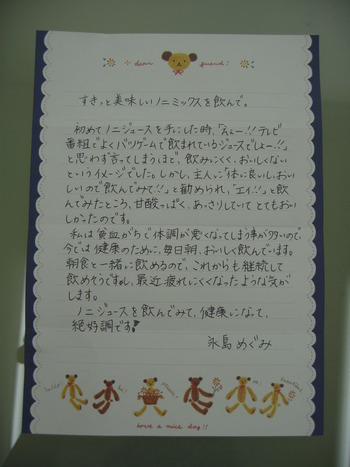 dear friend!
すきっと美味しいノニミックスを飲んで。
初めてノニジュースを手にした時、「えぇー!!テレビ
番組でよくバツゲームで飲まれているジュースでしょー!!」
と思わず言ってしまうほど、飲みにくく、おいしくない
というイメージでした。しかし、主人に「体に良いし、おい
しいので飲んでみて!!」と勧められ、「エイ!!」と飲
んでみたところ、甘酸っぱく、あっさりしていてとてもおい
しかったのです。
私は貧血がちで体調が悪くなってしまう事が多いので、
今では健康のために、毎日朝、おいしく飲んでいます。
朝食と一緒に飲めるので、これからも継続して
飲めそうですし、最近疲れにくくなったような気が
します。
ノニジュースを飲んでみて、健康になって、
絶好調です!
氷島めぐみ
have a nice day!!